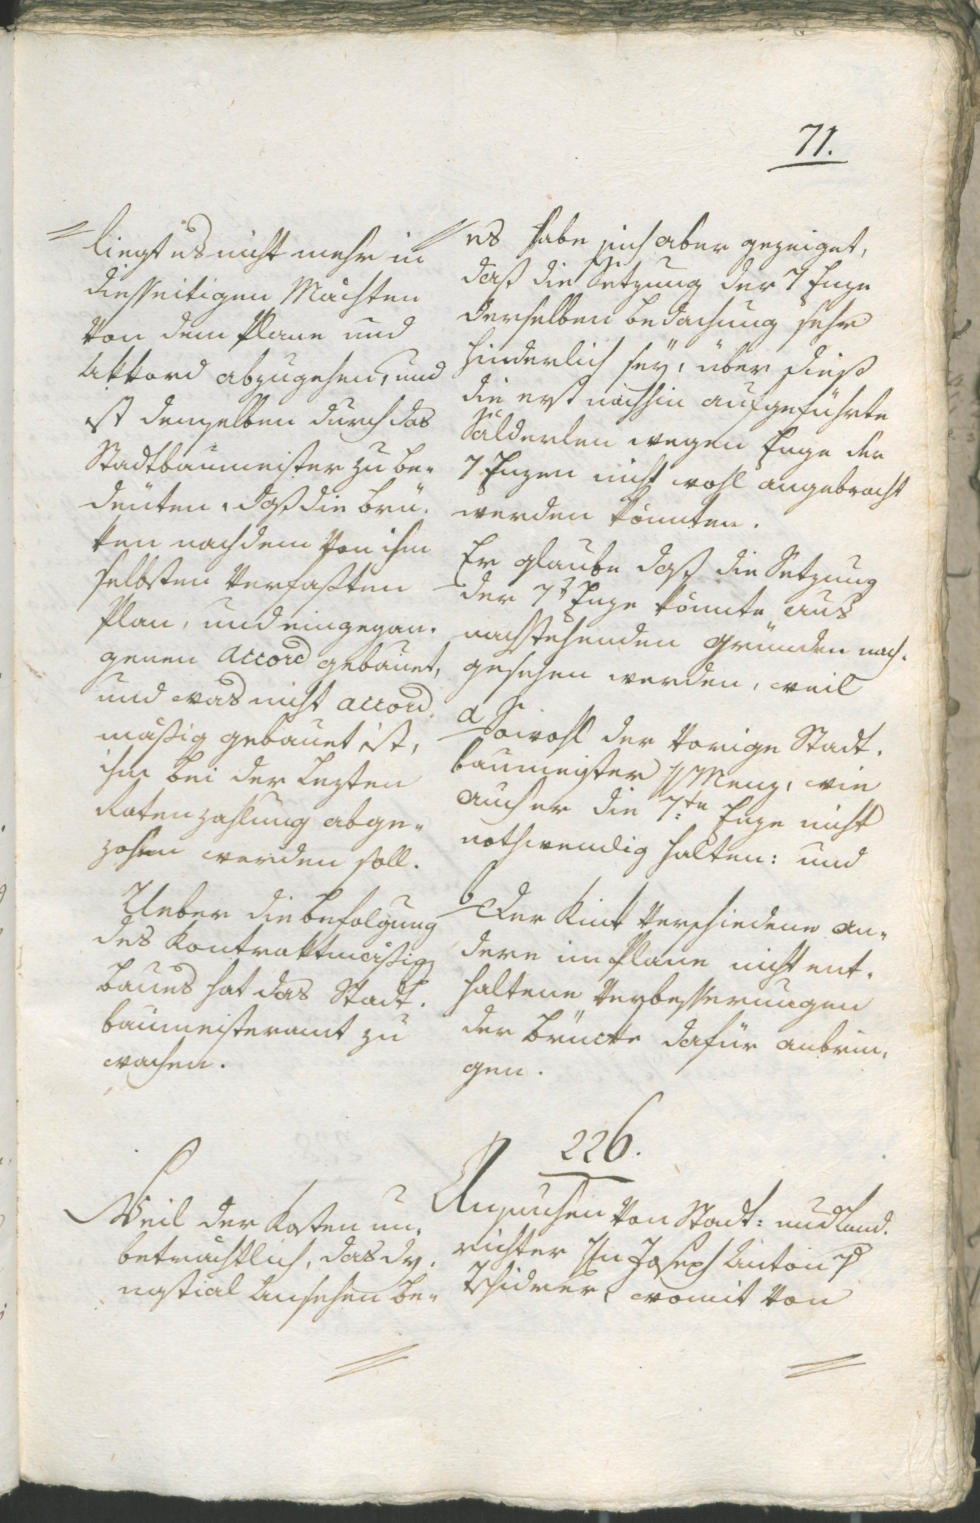 71.
liegt es nicht mehr in
diesseitigen Mächten
von dem Plane und
Akkord abzugehen, und
ist demselben durch das
Stadtbaumeister zu be-
deuten, daß die Brü-
ken nach dem von ihm
selbsten verfaßten
Plan, und eingegan-
genen Accord gebauet,
und was nicht accord
mäßig gebauet ist,
ihm bei der lezten
Ratenzahlung abge-
zohen werden soll.
Ueber die Befolgung
des Kontraktmäßig
Baues hat das Stadt-
baumeisteramt zu
wachen.
es habe sich aber gezeiget,
daß die Setzung der 7 Enze
derselben Bedachung sehr
hinderlich sey, über dieß
die erst nachhin aufgeführte
wegen Enge der
7 Enzen nicht wohl angebracht
werden könnten.
Er glaube daß die Setzung
der 7t Enze könnte aus
nachstehenden Gründen nach-
gesehen werden, weil
a Sowohl der vorige Stadt-
baumeister H Menz, wie
auch er die 7te Enze nicht
nothwendig halten: und
b der Kink verschiedene an-
dere im Plane nicht ent-
haltene Verbesserungen
der Brücke dafür anbrin-
gen.
226.
Weil der Kosten un-
beträchtlich, das dy-
nastial Ansehen be-
Ansuchen von Stadt- und Land-
richter Hn Joseph Anton v
Tschidrer, womit von